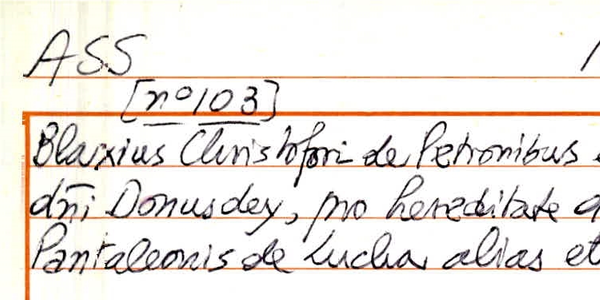 ASS
[nº 103]
Blaxius Christofori de Petronibus
dn̄i Donusdey, pro hereditate
Pantaleonis de Lucha alias et